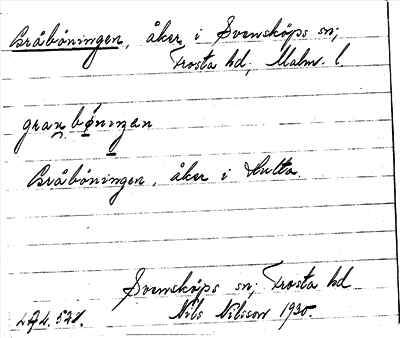 Gråböningen, åker i Svensköps sn;
Frosta hd, Malm. l.
grau̯bøninən
Gråböningen, åker i Hutta
Svensköps sn; Frosta hd
Nils Nilsson 1930.
LAL. 548.